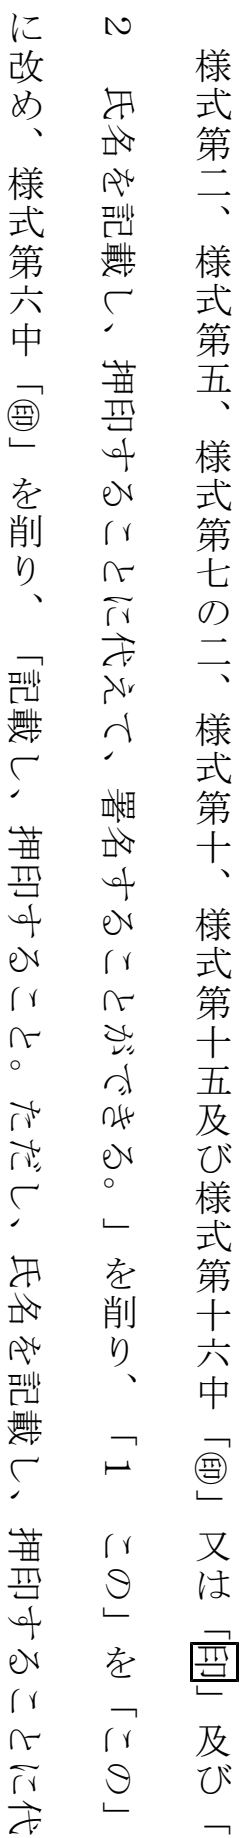 様式第二、様式第五、様式第七の二、様式第十、様式第十五及び様式第十六中「㊞」又は「印」及び「
2　氏名を記載し、押印することに代えて、署名することができる。」を削り、「1　この」を「この」
に改め、様式第六中「㊞」を削り、「記載し、押印すること。ただし、氏名を記載し、押印することに代